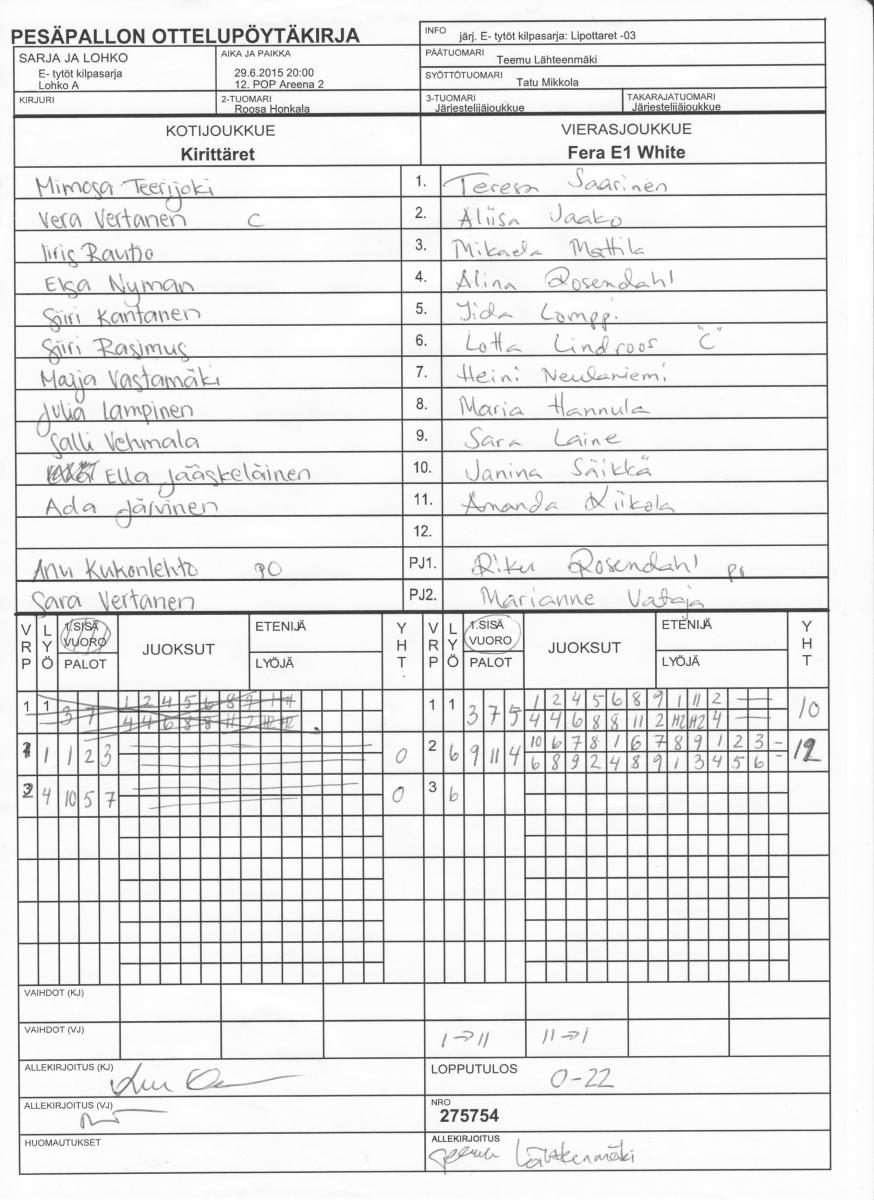 PESÄPALLON OTTELUPÖYTÄKIRJA
INFO järj. E- tytöt kilpasarja: Lipottaret -03
SARJA JA LOHKO
E- tytöt kilpasarja
Lohko A
AIKA JA PAIKKA
29.6.2015 20:00
12. POP Areena 2
PÄÄTUOMARI Teemu Lähteenmäki
SYÖTTÖTUOMARI Tatu Mikkola
KIRJURI
2-TUOMARI Roosa Honkala
3-TUOMARI Järjestelijäjoukkue
TAKARAJATUOMARI Järjestelijäjoukkue
KOTIJOUKKUE VIERASJOUKKUE
Kirittäret Fera E1 White
Mimosa Teerijoki 1. Teresa Saarinen
Vera Vertanen C 2. Aliisa Jaako
Iiris Rautio 3. Mikaela Mattila
Elsa Nyman 4. Alina Rosendahl
Siiri Kantanen 5. Iida Lomppi
Siiri Rasimus 6. Lotta Lindroos "C"
Maija Vastamäki 7. Heini Neulaniemi
Julia Lampinen 8. Maria Hannula
Salli Vehmala 9. Sara Laine
Ella Jääskeläinen 10. Janina Säikkä
Ada Järvinen 11. Amanda Kiikola
12.
Anu Kukonlehto PJ1. Riku Rosendahl
Sara Vertanen PJ2. Marianne Vataja
VRP LYÖ 1.SISÄ VUORO PALOT JUOKSUT ETENIJÄ LYÖJÄ YHT VRP LYÖ 1.SISÄ VUORO PALOT JUOKSUT ETENIJÄ LYÖJÄ YHT
1 1 3 7 1 1 3 7 5 1 2 4 5 6 8 9 1 11 2 10
4 4 6 8 8 11 2 4
1 1 2 3 0 2 6 9 11 4 10 6 7 8 1 6 7 8 9 1 2 3 - 12
6 8 9 2 4 8 9 1 3 4 5 6 -
3 4 10 5 7 0 3 6
VAIHDOT (KJ)
VAIHDOT (VJ) 1→11 11→1
ALLEKIRJOITUS (KJ)
LOPPUTULOS 0-22
ALLEKIRJOITUS (VJ)
NRO
275754
HUOMAUTUKSET
ALLEKIRJOITUS
Teemu Lähteenmäki